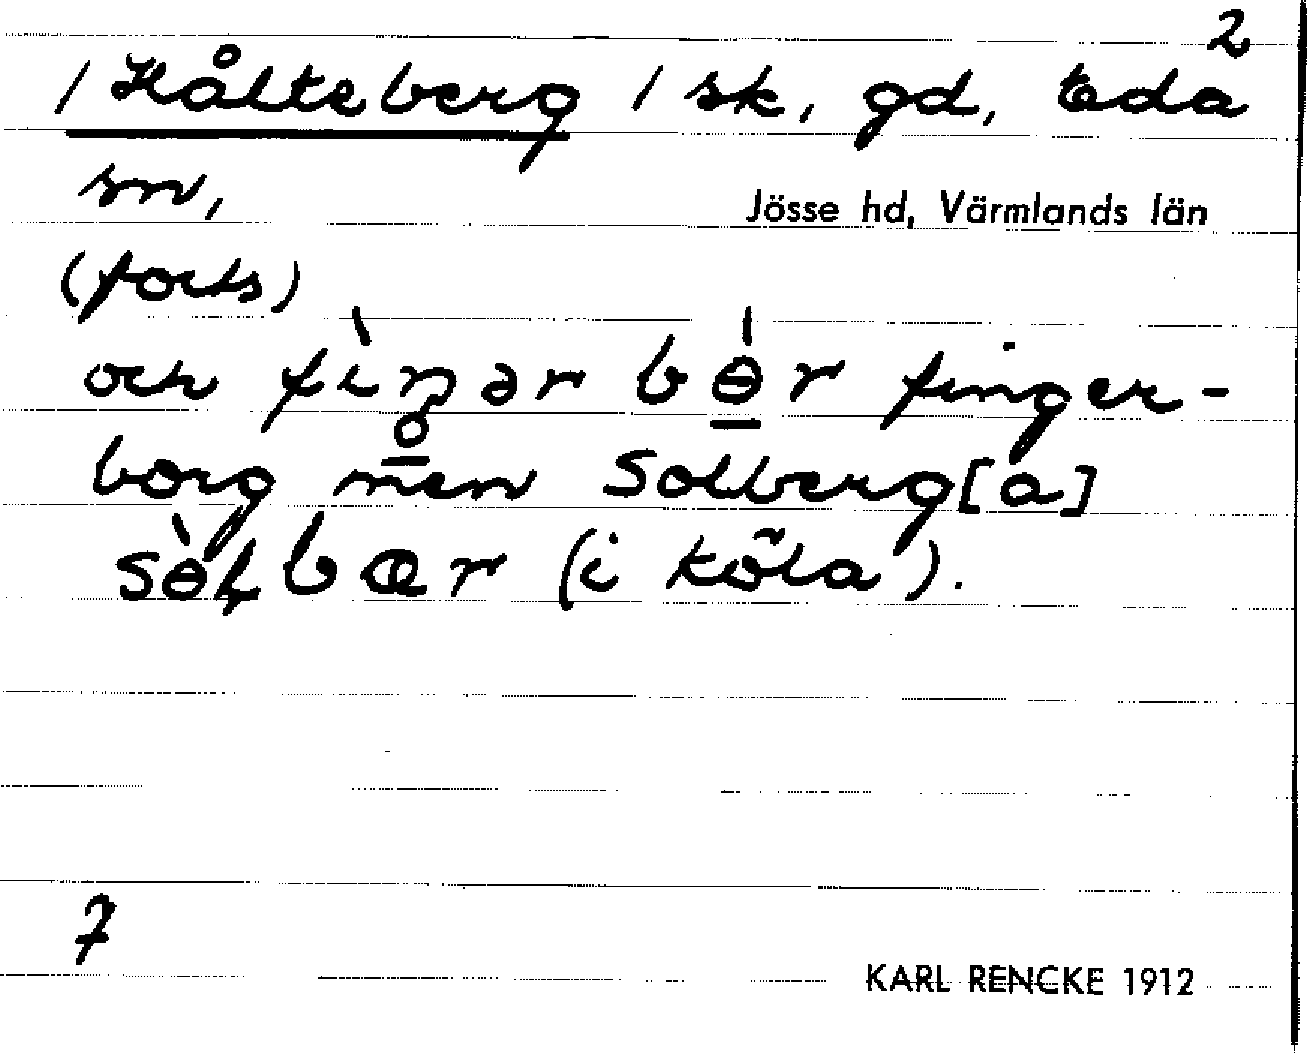 2
/ Kålteberg / sk, gd, Eda
sn,
Jösse hd, Värmlands län
(forts)
och fìŋ̥ər bɵ̠̀r finger-
borg men Solberg[a]
sɵ̀ɫbær (i Köla).
7
KARL RENCKE 1912